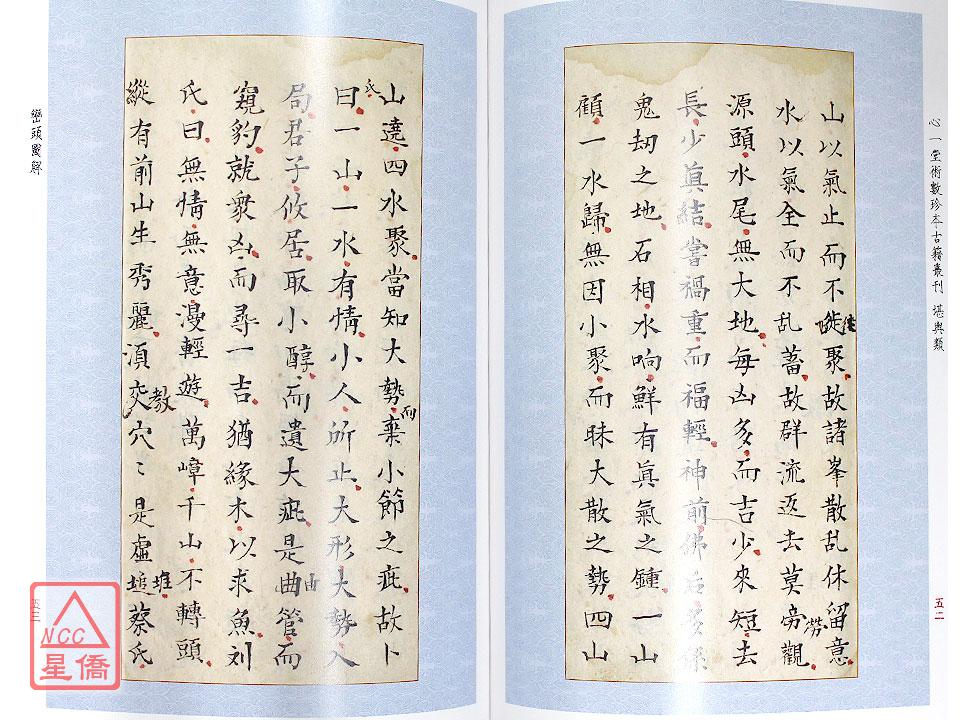 心一堂術數珍本古籍叢刊 堪輿類
山以氣止而不徙聚故諸峯散乱休留意
徙
水以氣全而不乱蓄故群流返去莫旁觀
勞
源頭水尾無大地每凶多而吉少來短去
長少眞結嘗禍重而福輕神前佛后
鬼刼之地石相水响鮮有眞氣之鍾一山
顧一水歸無因小聚而昧大散之勢四山
五二
山遶四水聚當知大勢棄小節之疵故卜
而
氏
曰一山一水有情小人所止大形大勢入
局君子攸居取小醇而遺大疵是曲管而
由
窺豹就衆凶而尋一吉猶緣木以求魚刘
氏曰無情無意漫輕遊萬嶂千山不轉頭
縱有前山生秀麗湏交穴〻是虛塠蔡氏
教
堆
巒頭圖解
五三
NCC
星僑